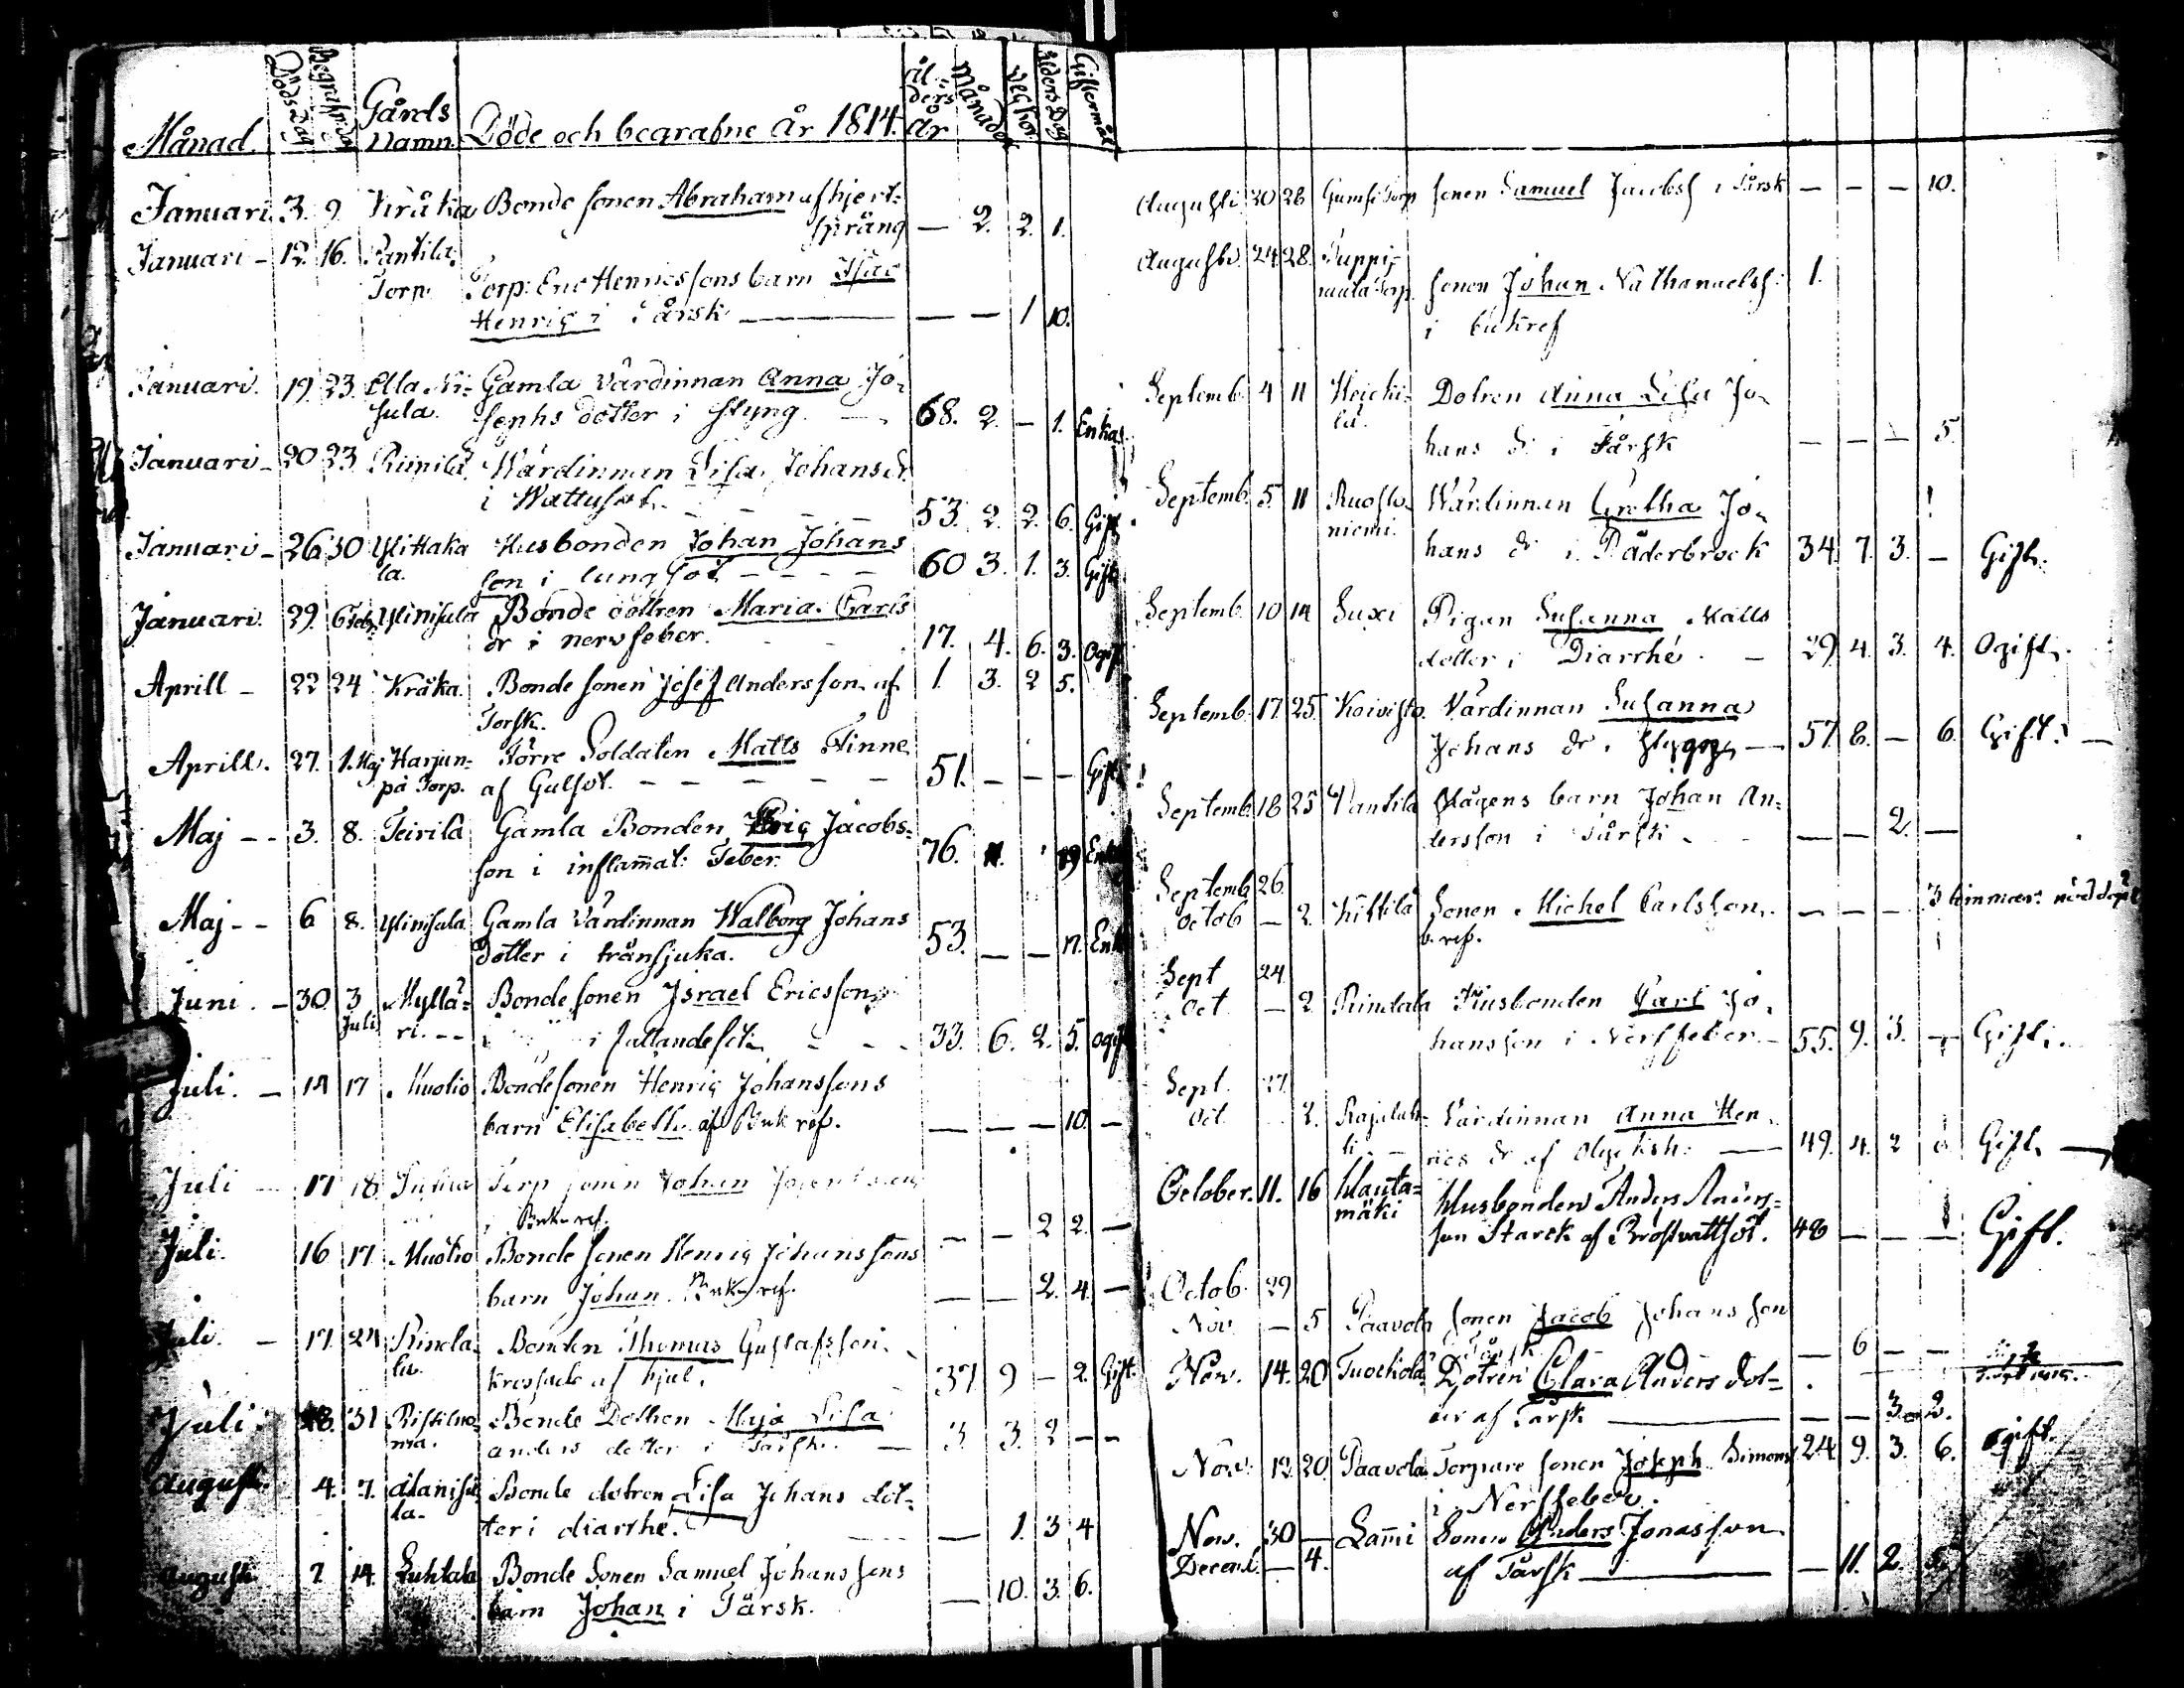 Månad. Döds Dag Begrafn. Dag Gårds Namn Döde och begrafne År 1814. Ål-ders År Månader Veckor Ålders Dag Giftermål
Januari. 3. 9. Kråka Bonde sonen Abraham af hjert-
språng — 2. 2. 1.
Januari - 12. 16. Pantila
Torp. Torp: Eric Henricssons barn Isac
Henric i Tårsk — — — 1 10.
Januari. 19. 23. Ella Ni- Gamla Värdinnan Anna Jo-
sula. sephs dotter i styng. — 68. 2. — 1. Enka
Januari - 20 23 Riipilä Wärdinnan Lisa Johans dr
i Wattusot. 53. 2. 2. 6. Gift.
Januari - 26 30 Ylihaka Husbonden Johan Johans
la. son i lungsot - - - - 60 3. 1. 3. Gift
Januari. 29. 6 Febr. Ylinisula Bonde dottren Maria Carls
dr i nervfeber. 17. 4. 6. 3. Ogift
Aprill - 22 24 Kråka. Bonde sonen Josef Andersson af 1. 3. 2 5.
Torsk.
Aprill. 27. 1. Maj Harjun- Förre Soldaten Matts Finne
pä Torp. af Gulsot. — — — — — 51. — — — Gift
Maj - - 3. 8. Teirilä Gamla Bonden Jacobs-
son i inflam̄at: Feber. 76. 19 Enkl
Maj - - 6 8. Ylinisula Gamla Värdinnan Walborg Johans
dotter i trånsjuka. 53. — — 17. Enk
Juni. - 30. 3 Myllä- Bonde sonen Israel Ericsson
Juli ri. - - i fallandesot - - 33. 6. 2. 5. ogift
Juli. - 14 17 Muotio Bondesonen Henric Johanssons
barn Elisabeth af Buk ref. — — — 10. —
Juli - 17 18 Torp sonen Johan
i Buk-ref. — — 2 2. —
Juli. 16 17. Muotio Bonde sonen Henric Johanssons
barn Johan. Buk-ref. — — 2. 4. —
Juli. - 17. 24 Rinda Bonden Thomas Gustafsson.
la. krossade af hjul. 37 9 — 2. Gift.
Juli. 31 Bonde Dottren Maja Lisa
Anders dotter i Tårsk. — 3. 3. 2 - -
Augusti. 4. 7. Alanisu Bonde dotren Lisa Johans dot-
la. ter i diarrhé. — 1. 3 4
Augusti 7. 14. Luhtala Bonde Sonen Samuel Johanssons
barn Johan i Tårsk. — 10. 3. 6.
Augusti. 20 28 Torp sonen Samuel Jacobss i Tårsk — — — 10.
Augusti. 24 28. Tuppi-
rauta Torp. sonen Johan Nathanaelss: 1.
i bukref
Septemb. 4 11 Heicki- Dotren Anna Lisa Jo-
lä. hans dr i Tårsk — — — 5.
Septemb. 5. 11 Ruosto- Wärdinnan Gretha Jo-
niemi. hans dr i Påderbrock 34. 7. 3. — Gift.
Septemb. 10 14 Luxi Pigan Susanna Matts
dotter i Diarrhé. — 29. 4. 3. 4. Ogift.
Septemb. 17. 25. Koivisto. Värdinnan Susanna
Johans dr i — 57. 8. — 6. Gift. —
Septemb. 18 25 Pantila barn Johan An-
dersson i Tårsk — — — 2. —
Septemb. 26.
Octob — 2. Kittilä Sonen Michel Carlsson. — — — 3
b. ref.
Sept 24.
Oct — 2 Rindala Husbonden Carl Jo-
hansson i Nerffeber. — 55. 9. 3. — Gift.
Sept. 27.
Oct. 2. Rajaluh- Värdinnan Anna Hen-
ti. — rics dr af Olycksh: — 49. 4. 2 Gift. —
October. 11. 16 Hauta-
mäki Husbonden Anders Anders-
son Starck af Bröstvattsot. 48 — — — Gift.
Octob. 29
Nov — 5 Paavola Sonen Jacob Johansson
Tårsk — 6 — —
Nov. 14. 20 Tuockola Dotren Clara Anders dot-
ter af Tårsk — — — 3. 2.
Nov. 12. 20. Paavola Torpare sonen Joseph Simons 24. 9. 3. 6. ogift.
i Nerffeber.
Nov. 30 — Lam̄i Sonen Anders Jonasson
Decemb. — 4. af Tårsk — — 11. 2.